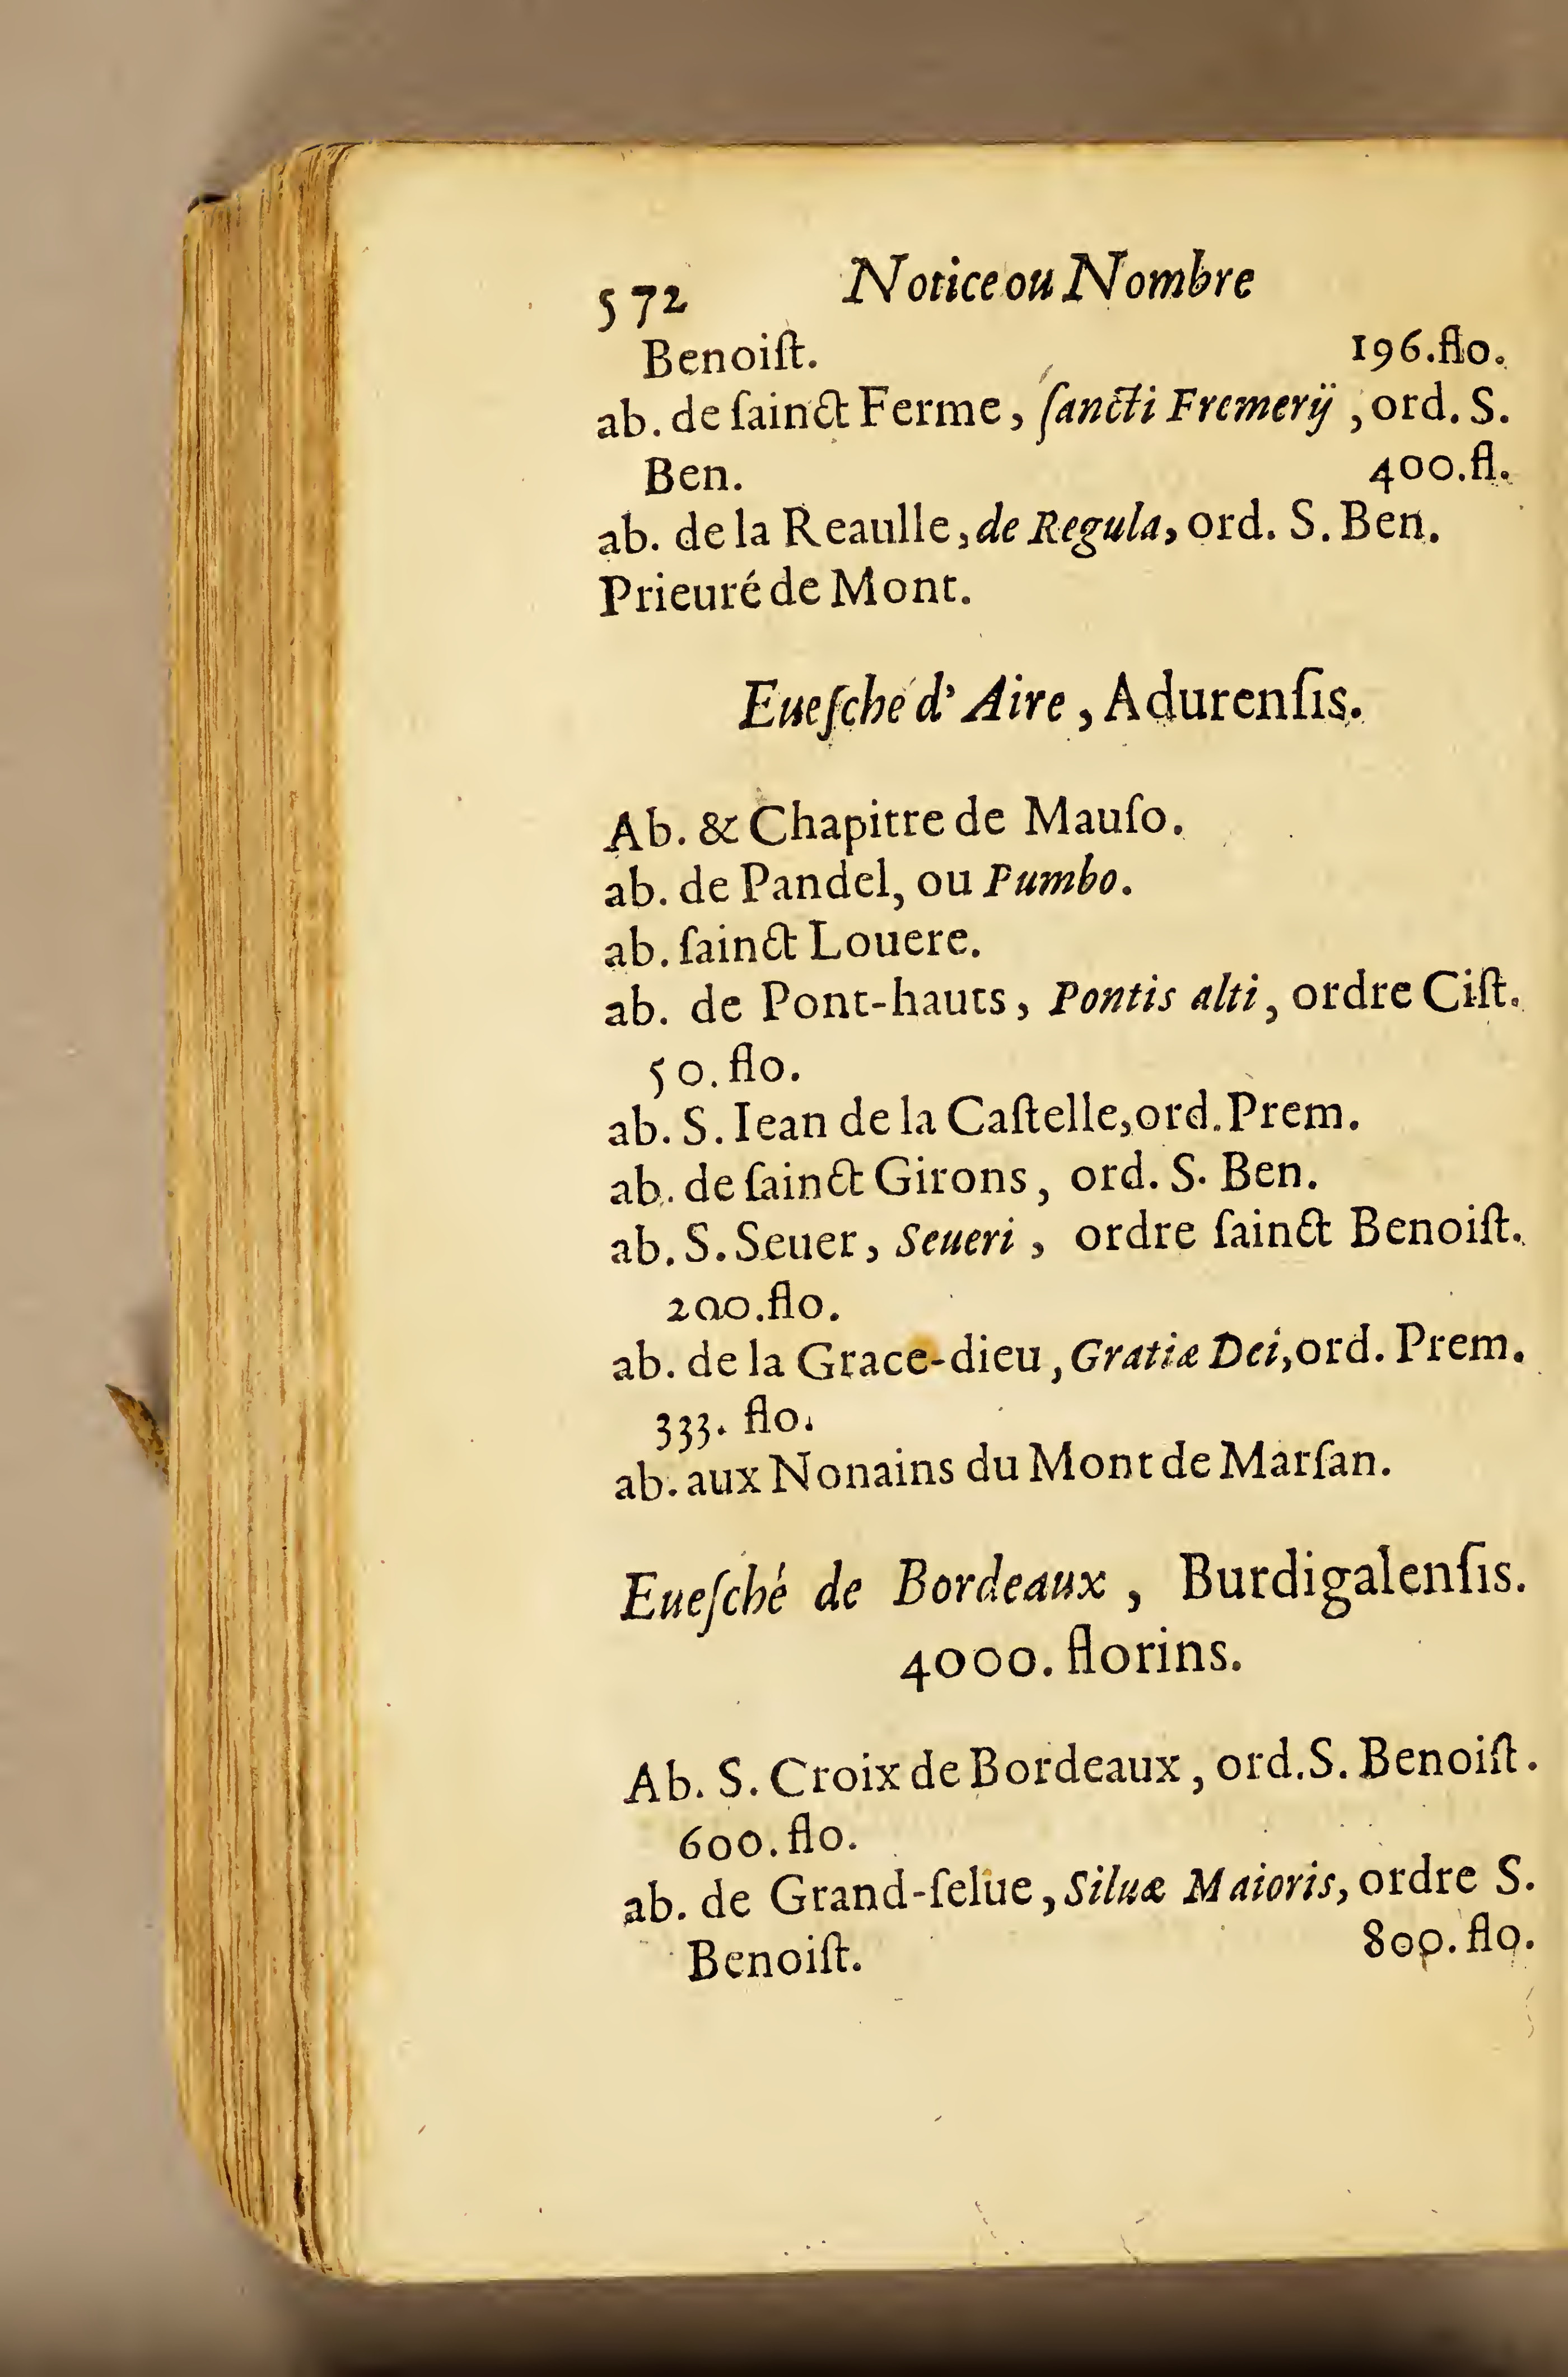 572 Notice ou Nombre
Benoiſt. 196.flo.
ab. de ſainct Ferme, ſancti Fremerij, ord. S.
Ben. 400.fl.
ab. de la Reaulle, de Regula, ord. S. Ben.
Prieuré de Mont.
Eueſché d'Aire, Adurenſis.
Ab. & Chapitre de Mauſo.
ab. de Pandel, ou Pumbo.
ab. ſainct Louere.
ab. de Pont-hauts, Pontis alti, ordre Ciſt.
50. flo.
ab. S. Iean de la Caſtelle, ord. Prem.
ab. de ſainct Girons, ord. S. Ben.
ab. S. Seuer, Seueri, ordre ſainct Benoiſt.
200.flo.
ab. de la Grace-dieu, Gratiæ Dei, ord. Prem.
333. flo.
ab. aux Nonains du Mont de Marſan.
Eueſché de Bordeaux, Burdigalenſis.
4000. florins.
Ab. S. Croix de Bordeaux, ord. S. Benoiſt.
600. flo.
ab. de Grand-ſelue, Siluæ Maioris, ordre S.
Benoiſt. 800. flo.